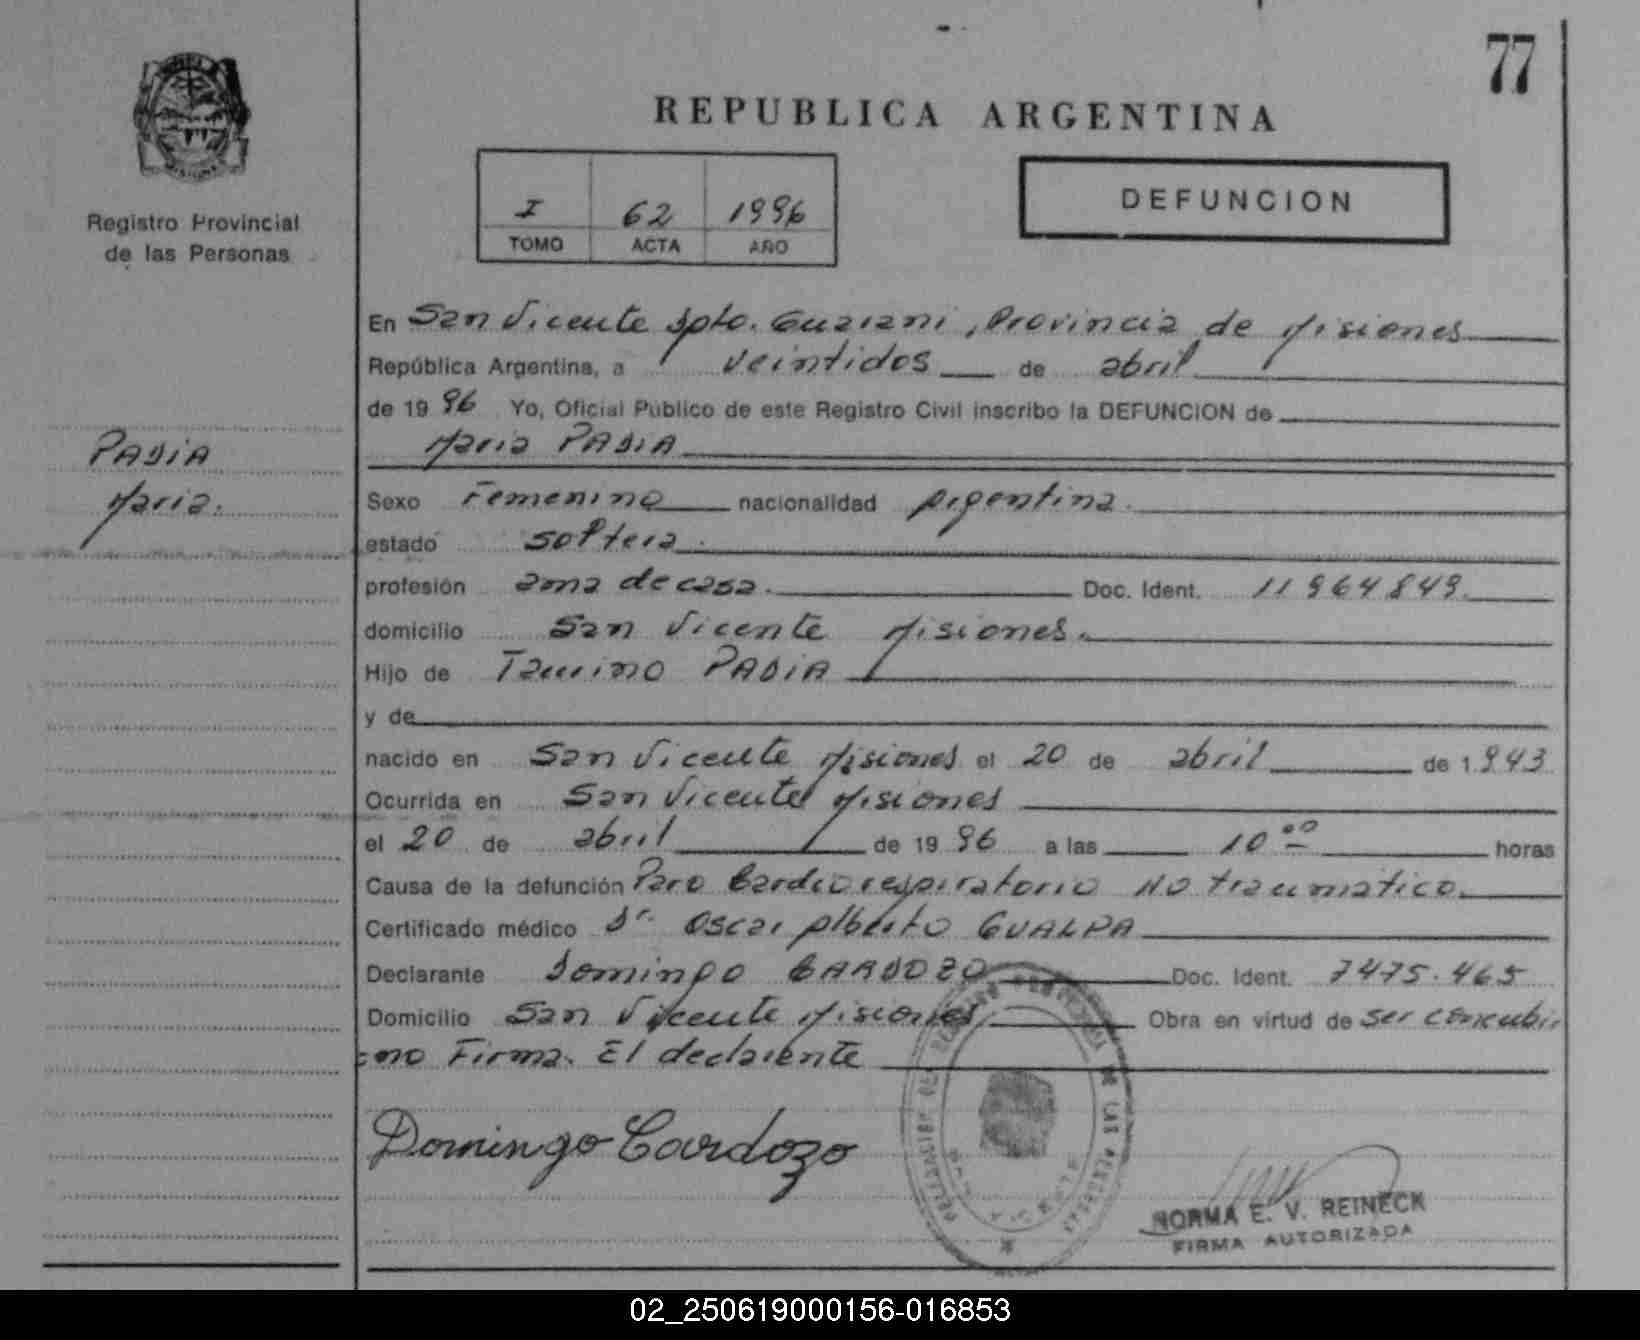 77
REPUBLICA ARGENTINA
Registro Provincial
de las Personas
I 62 1996
TOMO ACTA AÑO
DEFUNCION
En San Vicente Dpto. Guarani, Provincia de Misiones
República Argentina, a veintidos de abril
de 1996 Yo, Oficial Público de este Registro Civil inscribo la DEFUNCION de
Maria PADIA
PADIA
Maria.
Sexo Femenino nacionalidad Argentina.
estado soltera.
profesión ama de casa. Doc. Ident. 11964849.
domicilio San Vicente Misiones.
Hijo de PADIA
y de
nacido en San Vicente Misiones el 20 de abril de 1943
Ocurrida en San Vicente Misiones
el 20 de abril de 1996 a las 10 00 horas
Causa de la defunción Paro Cardiorespiratorio No traumatico.
Certificado médico Dr. Oscar Alberto GUALPA
Declarante Domingo CARDOZO Doc. Ident. 7475.465
Domicilio San Vicente Misiones Obra en virtud de ser concubi
no Firma. El declarante
Domingo Cardozo
NORMA E. V. REINECK
FIRMA AUTORIZADA
02_250619000156-016853